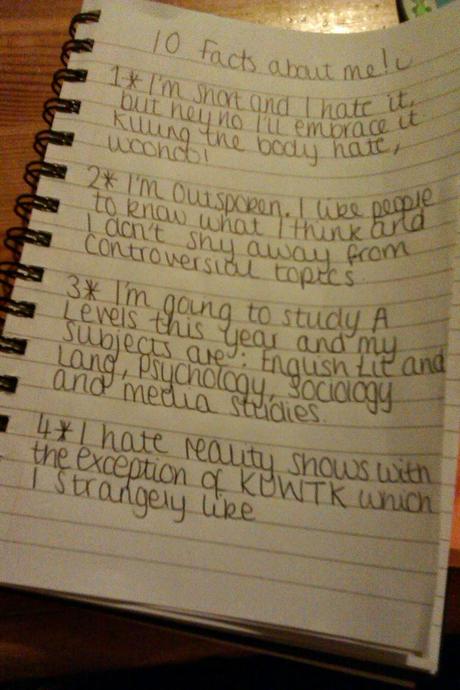 10 facts about me!
1* I'm short and I hate it,
but hey ho I'll embrace it
killing the body hate,
woohoo!
2* I'm outspoken. I like people
to know what I think and
I don't shy away from
controversial topics.
3* I'm going to study A
Levels this year and my
subjects are: English Lit and
Lang, Psychology, Sociology
and media studies.
4* I hate reality shows with
the exception of KUWTK which
I strangely like